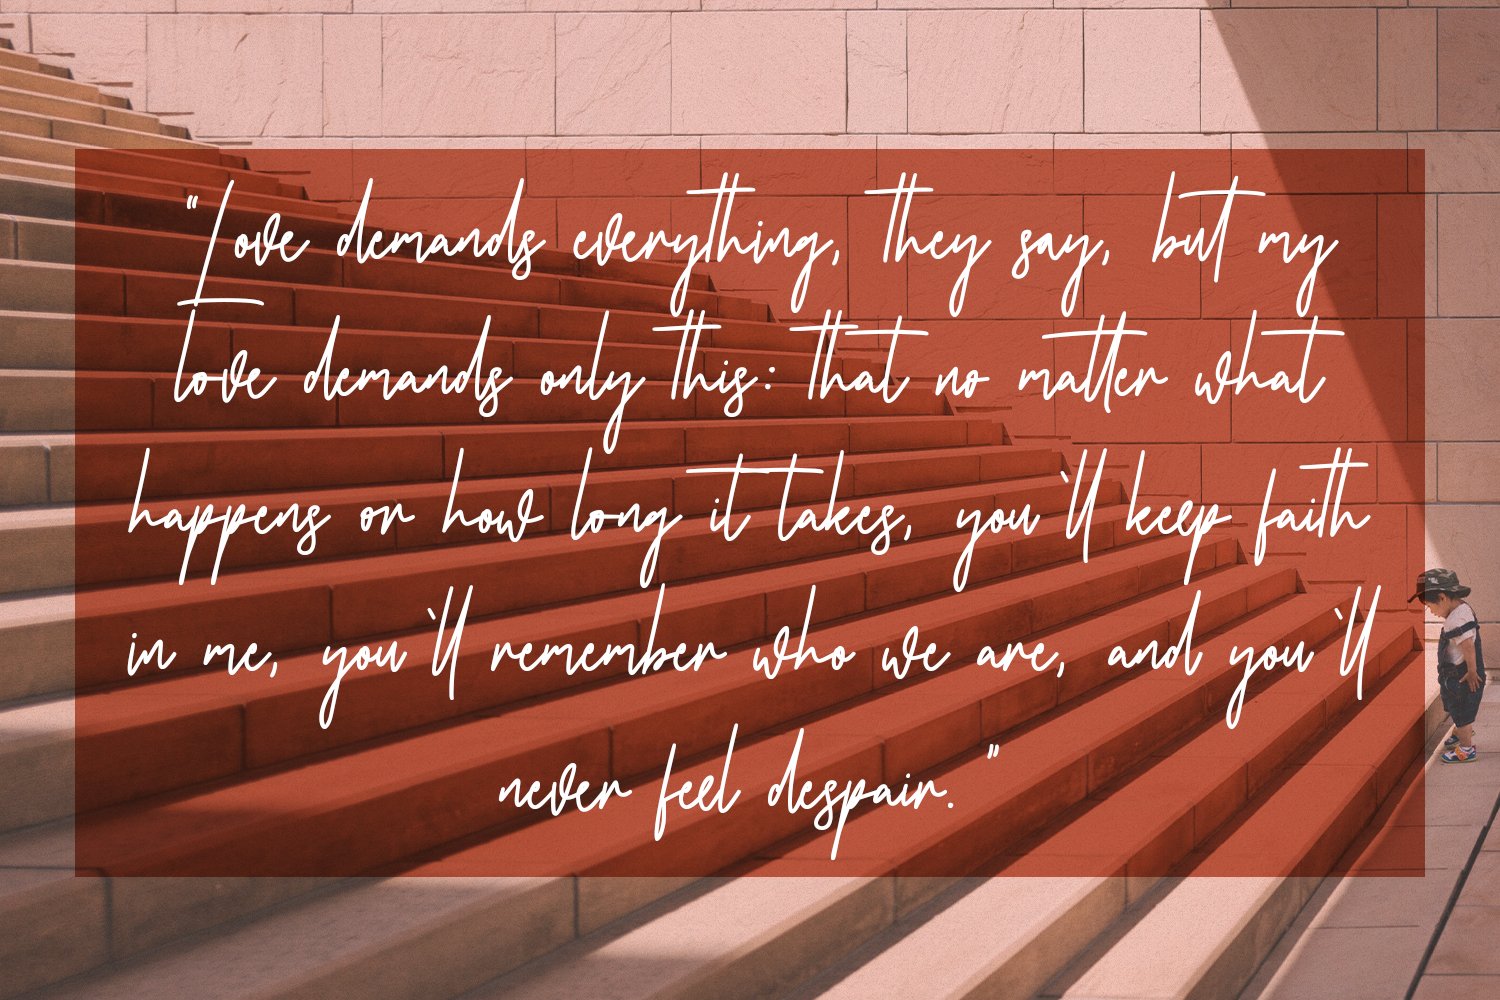 "Love demands everything, they say, but my
love demands only this: that no matter what
happens or how long it takes, you'll keep faith
in me, you'll remember who we are, and you'll
never feel despair."